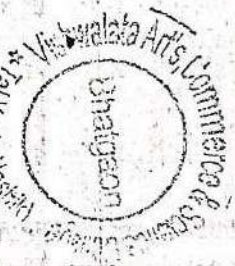 * Vishwalata Art's, Commerce & Science College
Bhatgaon